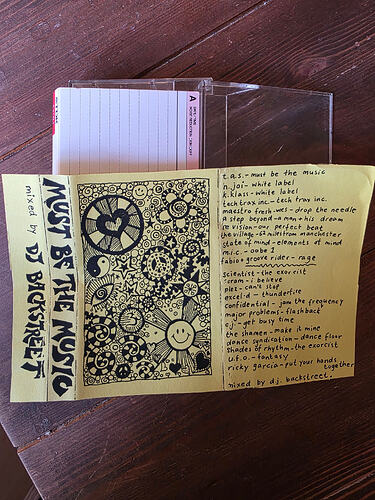 A
DATE/TIME
MUST BE THE MUSIC
mixed by DJ BACKSTREET
t.a.s. - must be the music
n.joi - white label
k.klass - white label
techtrax inc. - tech trax inc.
maestro fresh-wes - drop the needle
a step beyond - a man + his dream
re vision - our perfect beat
the village - 18 miles from manchester
state of mind - elements of mind
m.i.c. - oobe 1
fabio + groove rider - rage
scientist - the exorcist
scram - i believe
plez - can't stop
excel:d - thunderfire
confidential - jam the frequency
major problems - flashback
c.j - get busy time
the shamen - make it mine
dance syndication - dance floor
shades of rhythm - the exorcist
u.f.o. - fantasy
ricky garcia - put your hands
together
mixed by d.j. backstreet.